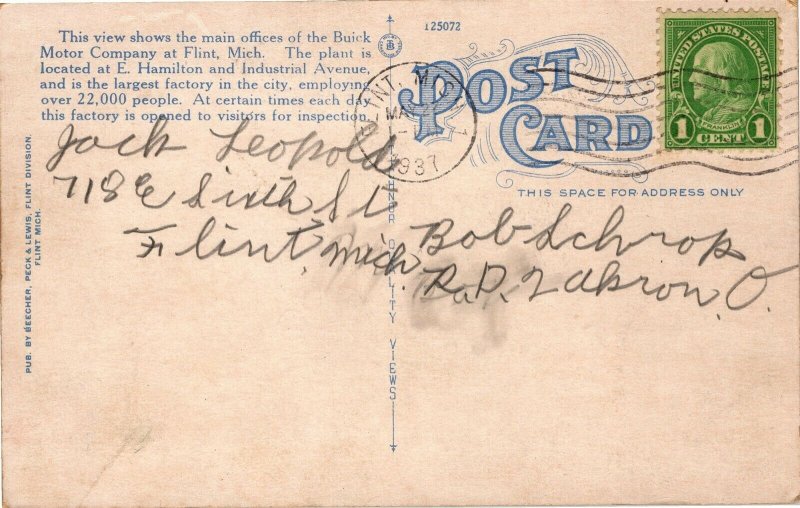 This view shows the main offices of the Buick
Motor Company at Flint, Mich. The plant is
located at E. Hamilton and Industrial Avenue,
and is the largest factory in the city, employing
over 22,000 people. At certain times each day
this factory is opened to visitors for inspection.
125072
POST
CARD
UNITED STATES POSTAGE
FRANKLIN
1 CENT 1
FLINT, MICH.
MAY
1937
THIS SPACE FOR ADDRESS ONLY
Jack Leopold
718 E Sixth St
Flint, Mich.
Bob Schrop
R.D. 2 Akron, O.
PUB. BY BEECHER, PECK & LEWIS, FLINT DIVISION.
FLINT MICH.
QUALITY VIEWS